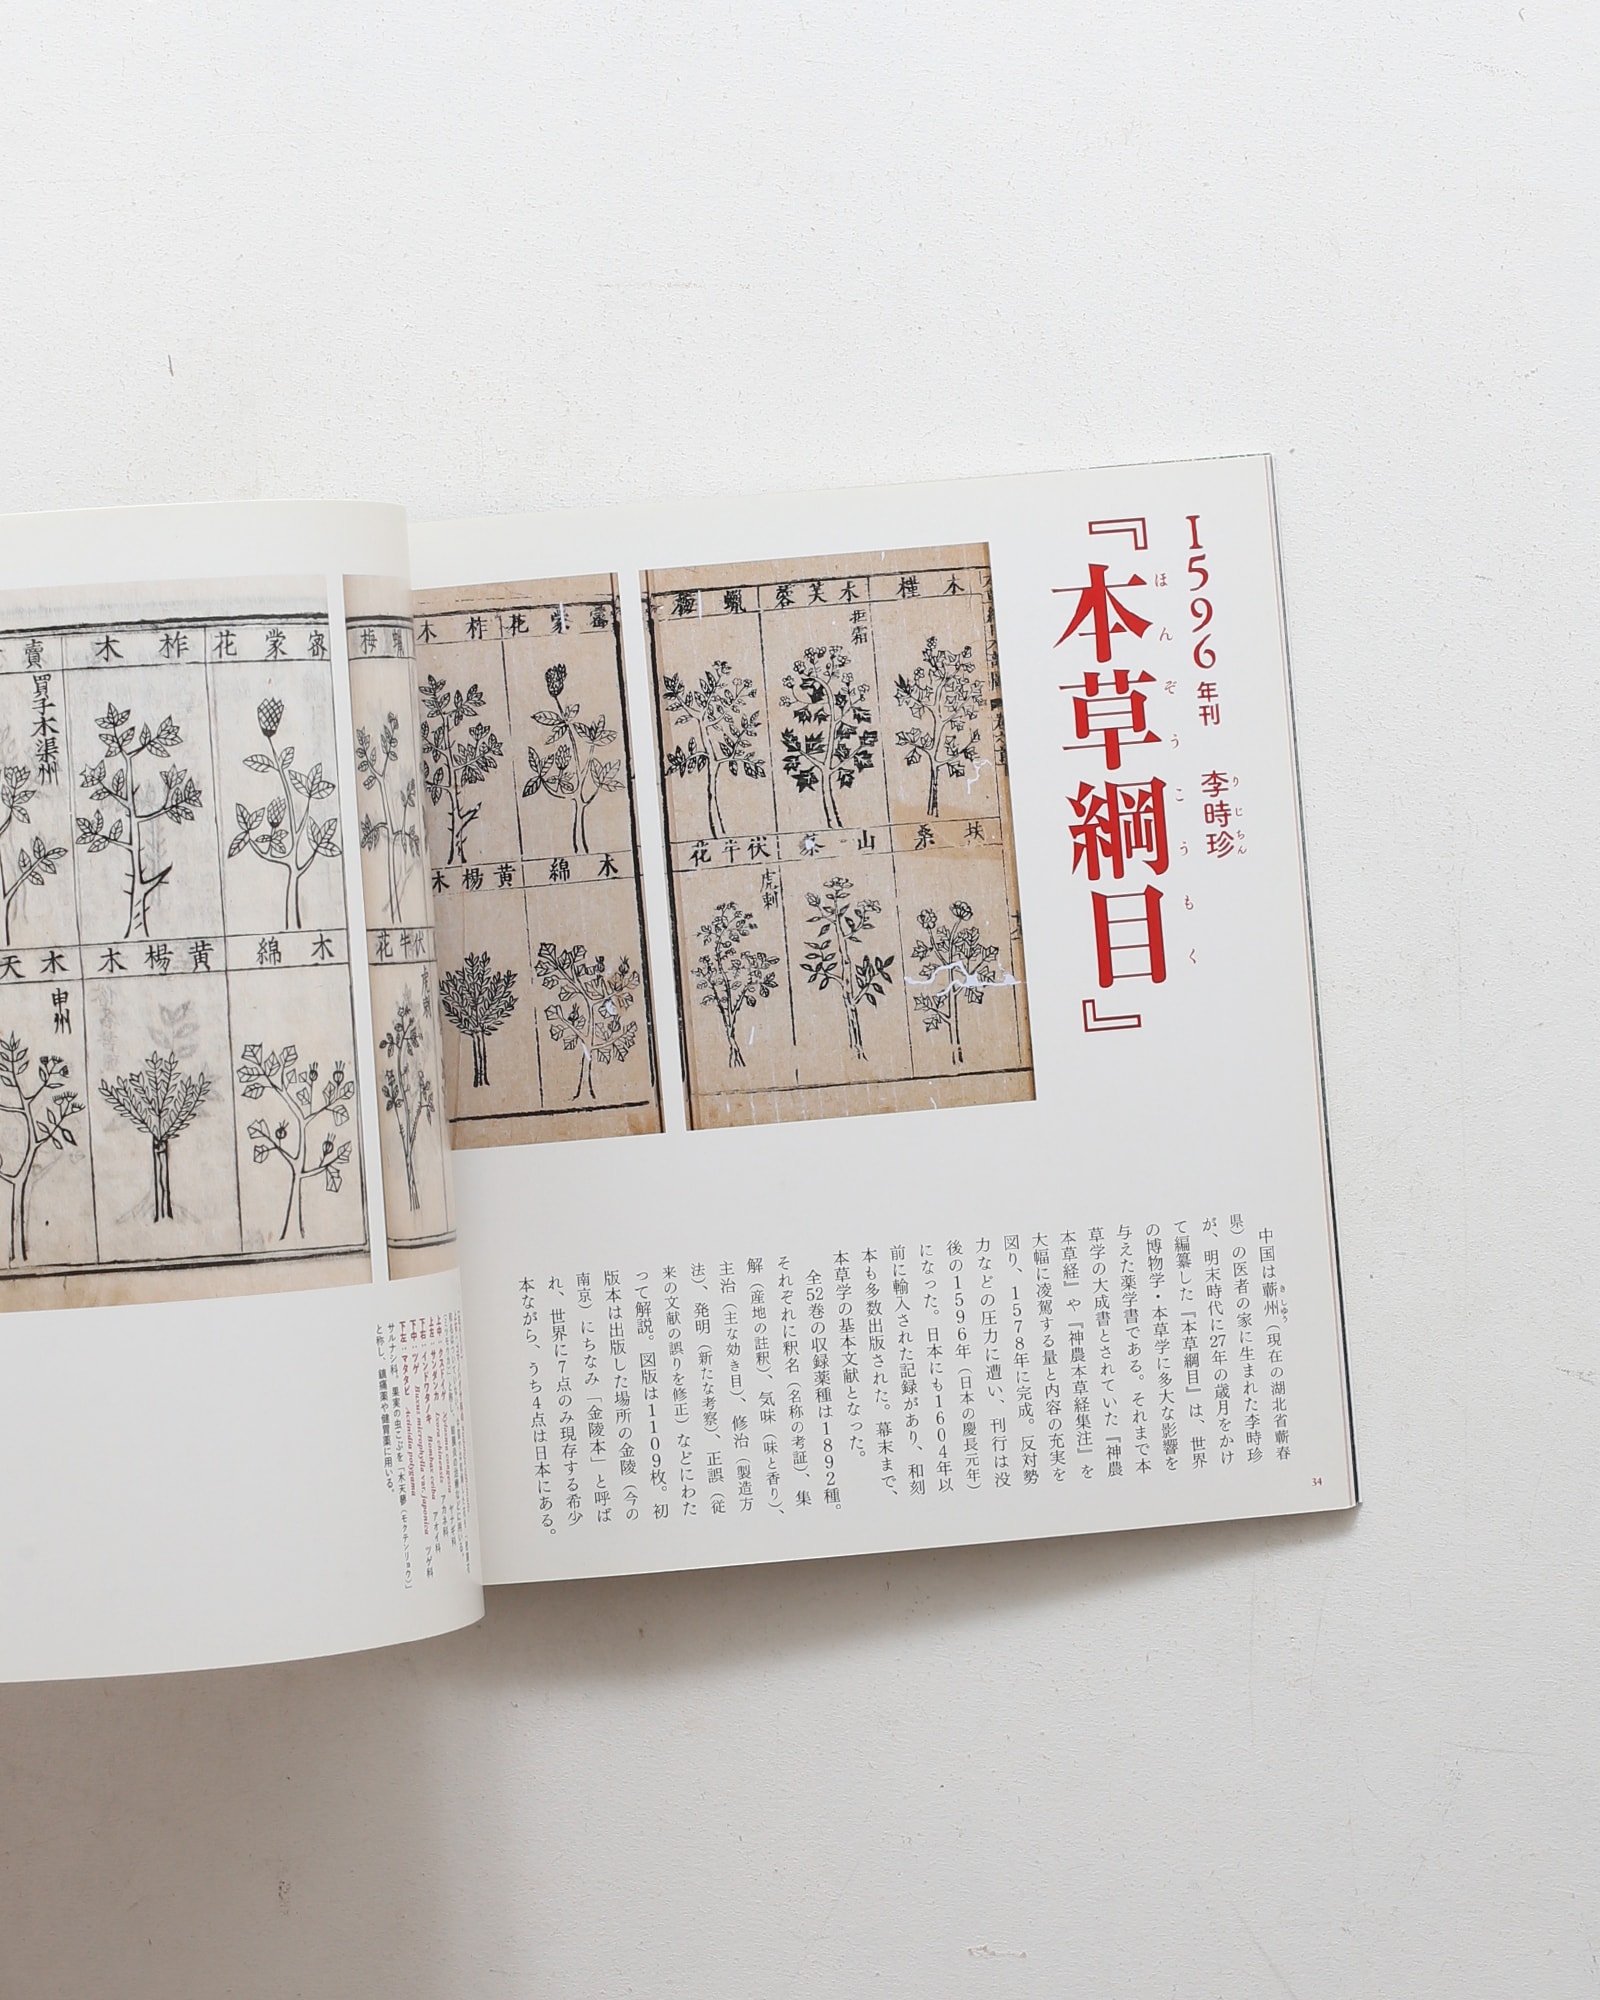 1596年刊 李時珍
りじちん
『本草綱目』
ほんぞうこうもく
中国は蘄州（現在の湖北省蘄春
きしゅう
県）の医者の家に生まれた李時珍
が、明末時代に27年の歳月をかけ
て編纂した『本草綱目』は、世界
の博物学・本草学に多大な影響を
与えた薬学書である。それまで本
草学の大成書とされていた『神農
本草経』や『神農本草経集注』を
大幅に凌駕する量と内容の充実を
図り、1578年に完成。反対勢
力などの圧力に遭い、刊行は没
後の1596年（日本の慶長元年）
になった。日本にも1604年以
前に輸入された記録があり、和刻
本も多数出版された。幕末まで、
本草学の基本文献となった。
全52巻の収録薬種は1892種。
それぞれに釈名（名称の考証）、集
解（産地の註釈）、気味（味と香り）、
主治（主な効き目）、修治（製造方
法）、発明（新たな考察）、正誤（従
来の文献の誤りを修正）などにわた
って解説。図版は1109枚。初
版本は出版した場所の金陵（今の
南京）にちなみ「金陵本」と呼ば
れ、世界に7点のみ現存する希少
本ながら、うち4点は日本にある。
34
木槿
木芙蓉
拒霜
蠟梅
扶桑
山茶
伏牛花
虎刺
密蒙花
柞木
木綿
黄楊木
蠟梅
伏牛花
虎刺
密蒙花
柞木
賣
買子木渠州
木綿
黄楊木
木天
申州
上中：クスドイゲ
上左：サンダンカ Ixora chinensis アカネ科
下右：インドワタノキ Bombax ceiba アオイ科
下中：ツゲ Buxus microphylla var. japonica ツゲ科
下左：マタタビ Actinidia polygama
サルナシ科。果実の虫こぶを「木天蓼（モクテンリョウ）」
と称し、鎮痛薬や健胃薬に用いる。